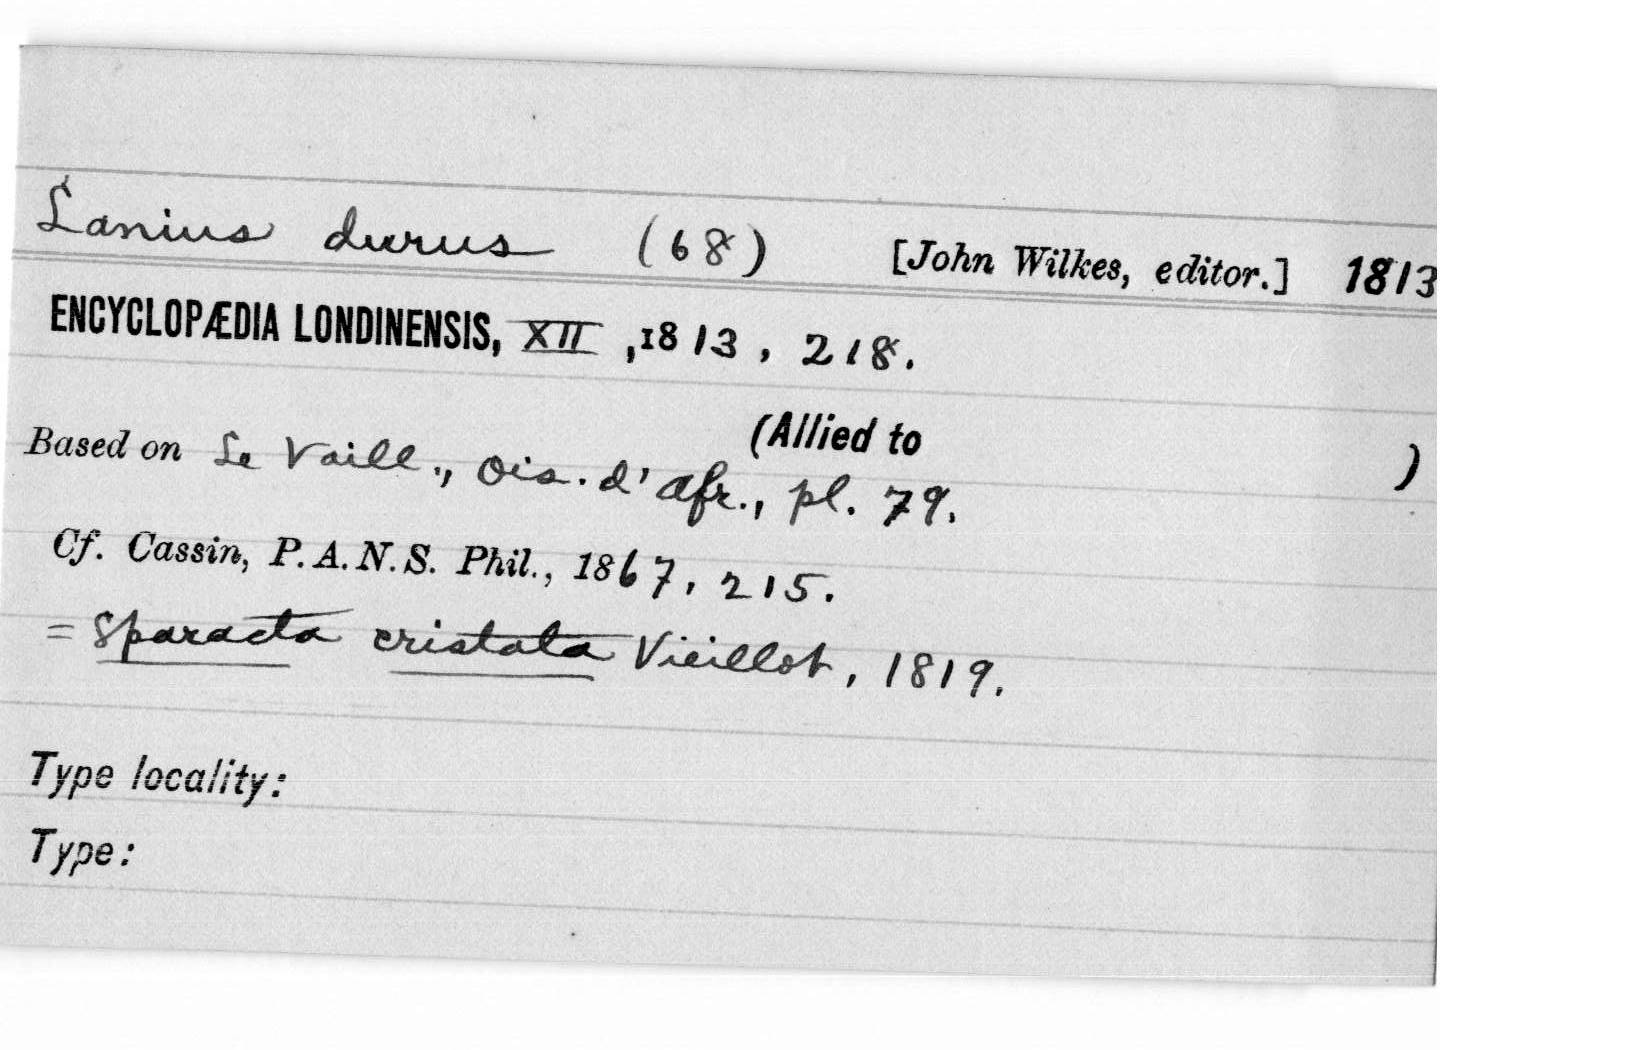 Lanius durus (68) [John Wilkes, editor.] 1813
ENCYCLOPÆDIA LONDINENSIS, XII, 1813, 218.
(Allied to )
Based on Le Vaill., Ois. d'Afr., pl. 79.
Cf. Cassin, P. A. N. S. Phil., 1867, 215.
= Sparacta cristata Vieillot, 1819.
Type locality:
Type: